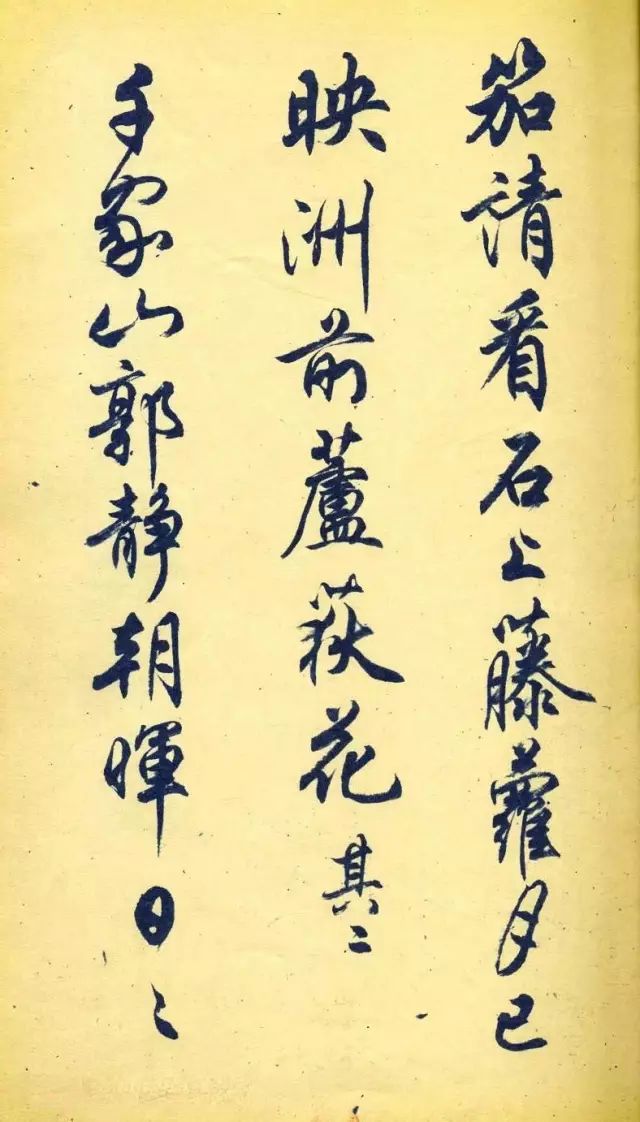 笳请看石上藤蘿月已
映洲前蘆荻花其二
千家山郭静朝暉日〻